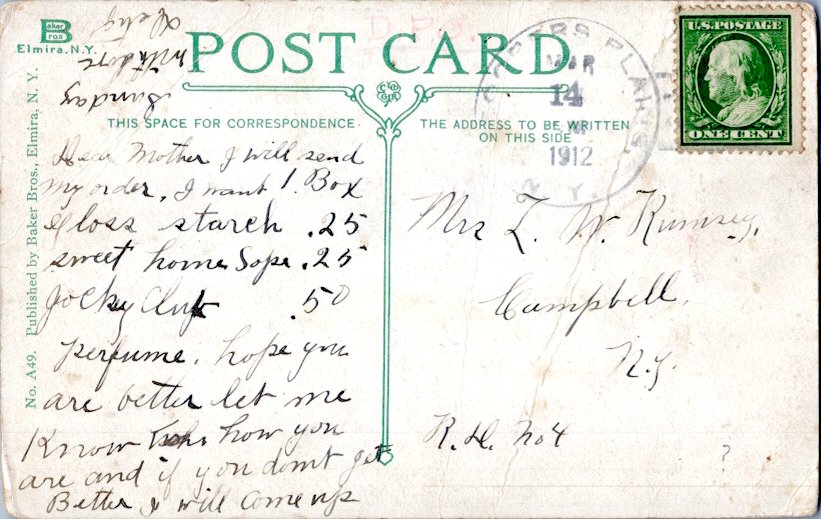 Baker
Bros
Elmira, N.Y.
POST CARD
THIS SPACE FOR CORRESPONDENCE
THE ADDRESS TO BE WRITTEN
ON THIS SIDE
No. A49. Published by Baker Bros., Elmira, N. Y.
U.S. POSTAGE
ONE CENT
COOPERS PLAINS
MAR
14
1912
N. Y.
Dear Mother I will send
my order, I want 1. Box
Gloss starch .25
sweet home Sope .25
Jocky Club .50
Perfume. hope you
are better let me
Know how you
are and if you domt get
Better I will come up
Sunday
Mrs L. W. Rumsey.
Campbell.
N.Y.
R.D. No 4
?